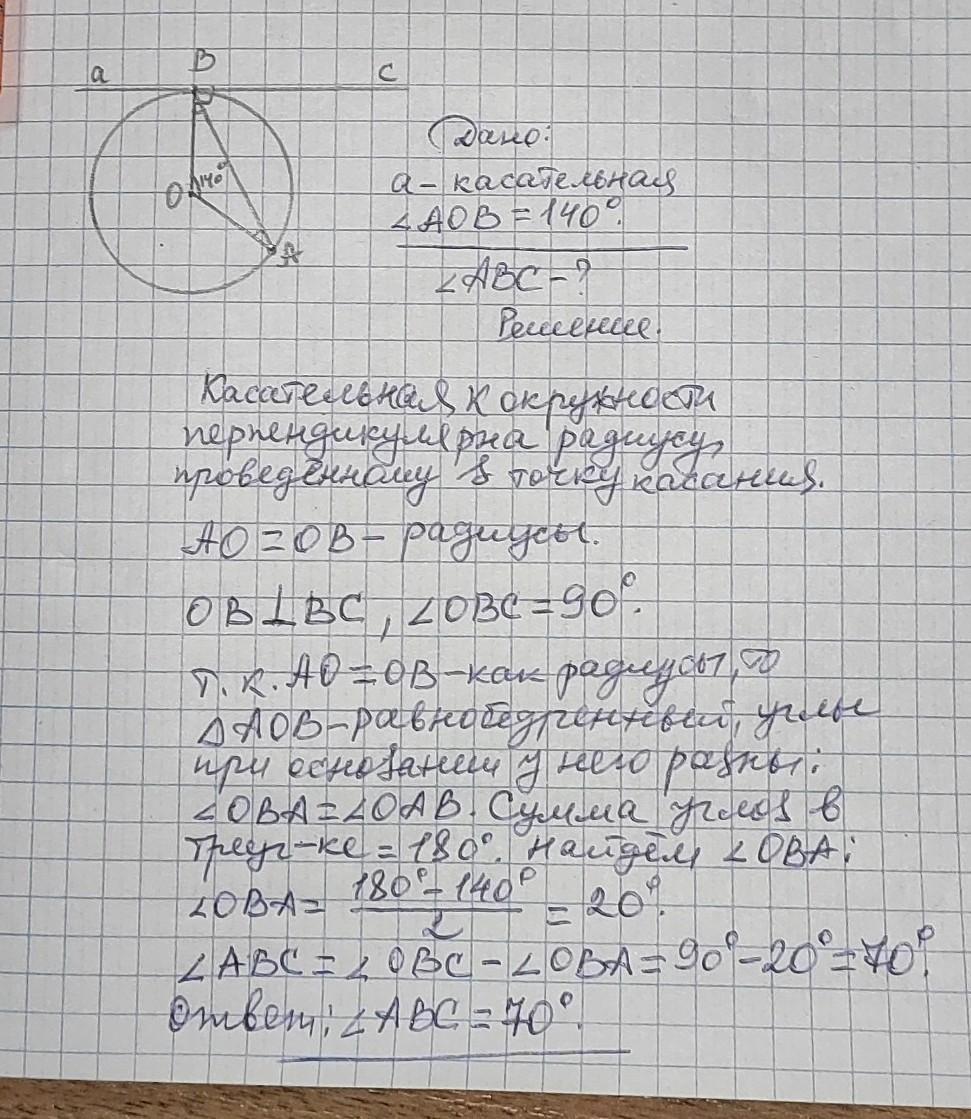 a B C
O 140°
A
Дано:
a - касательная
∠AOB = 140°.
∠ABC - ?
Решение.
Касательная к окружности
перпендикулярна радиусу,
проведённому в точку касания.
AO = OB - радиусы.
OB ⊥ BC, ∠OBC = 90°.
Т. к. AO = OB - как радиусы, то
△AOB - равнобедренный, углы
при основании у него равны:
∠OBA = ∠OAB. Сумма углов в
треуг-ке = 180°. Найдём ∠OBA:
∠OBA = (180° - 140°)/2 = 20°.
∠ABC = ∠OBC - ∠OBA = 90° - 20° = 70°.
Ответ: ∠ABC = 70°.